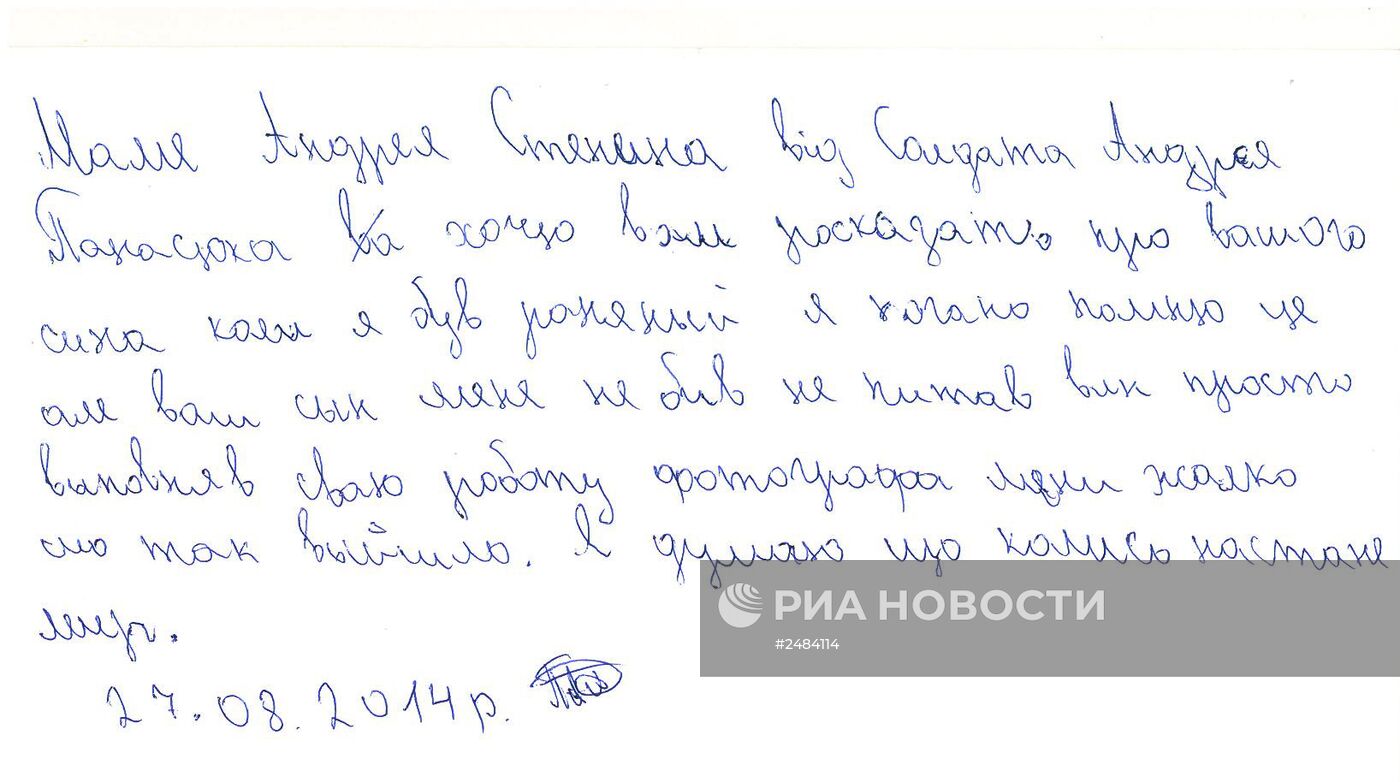 Маме Андрея Стенина від Солдата Андрєя
Панасюка я хочцо вам росказать про вашого
сина коли я був раненый я погано помню це
але ваш сын мене не бив не питав він просто
выповняв сваю роботу фотографа мени жалко
що так выйшло. Я думаю що колись настане
мир.
27.08.2014р.
РИА НОВОСТИ
#2484114